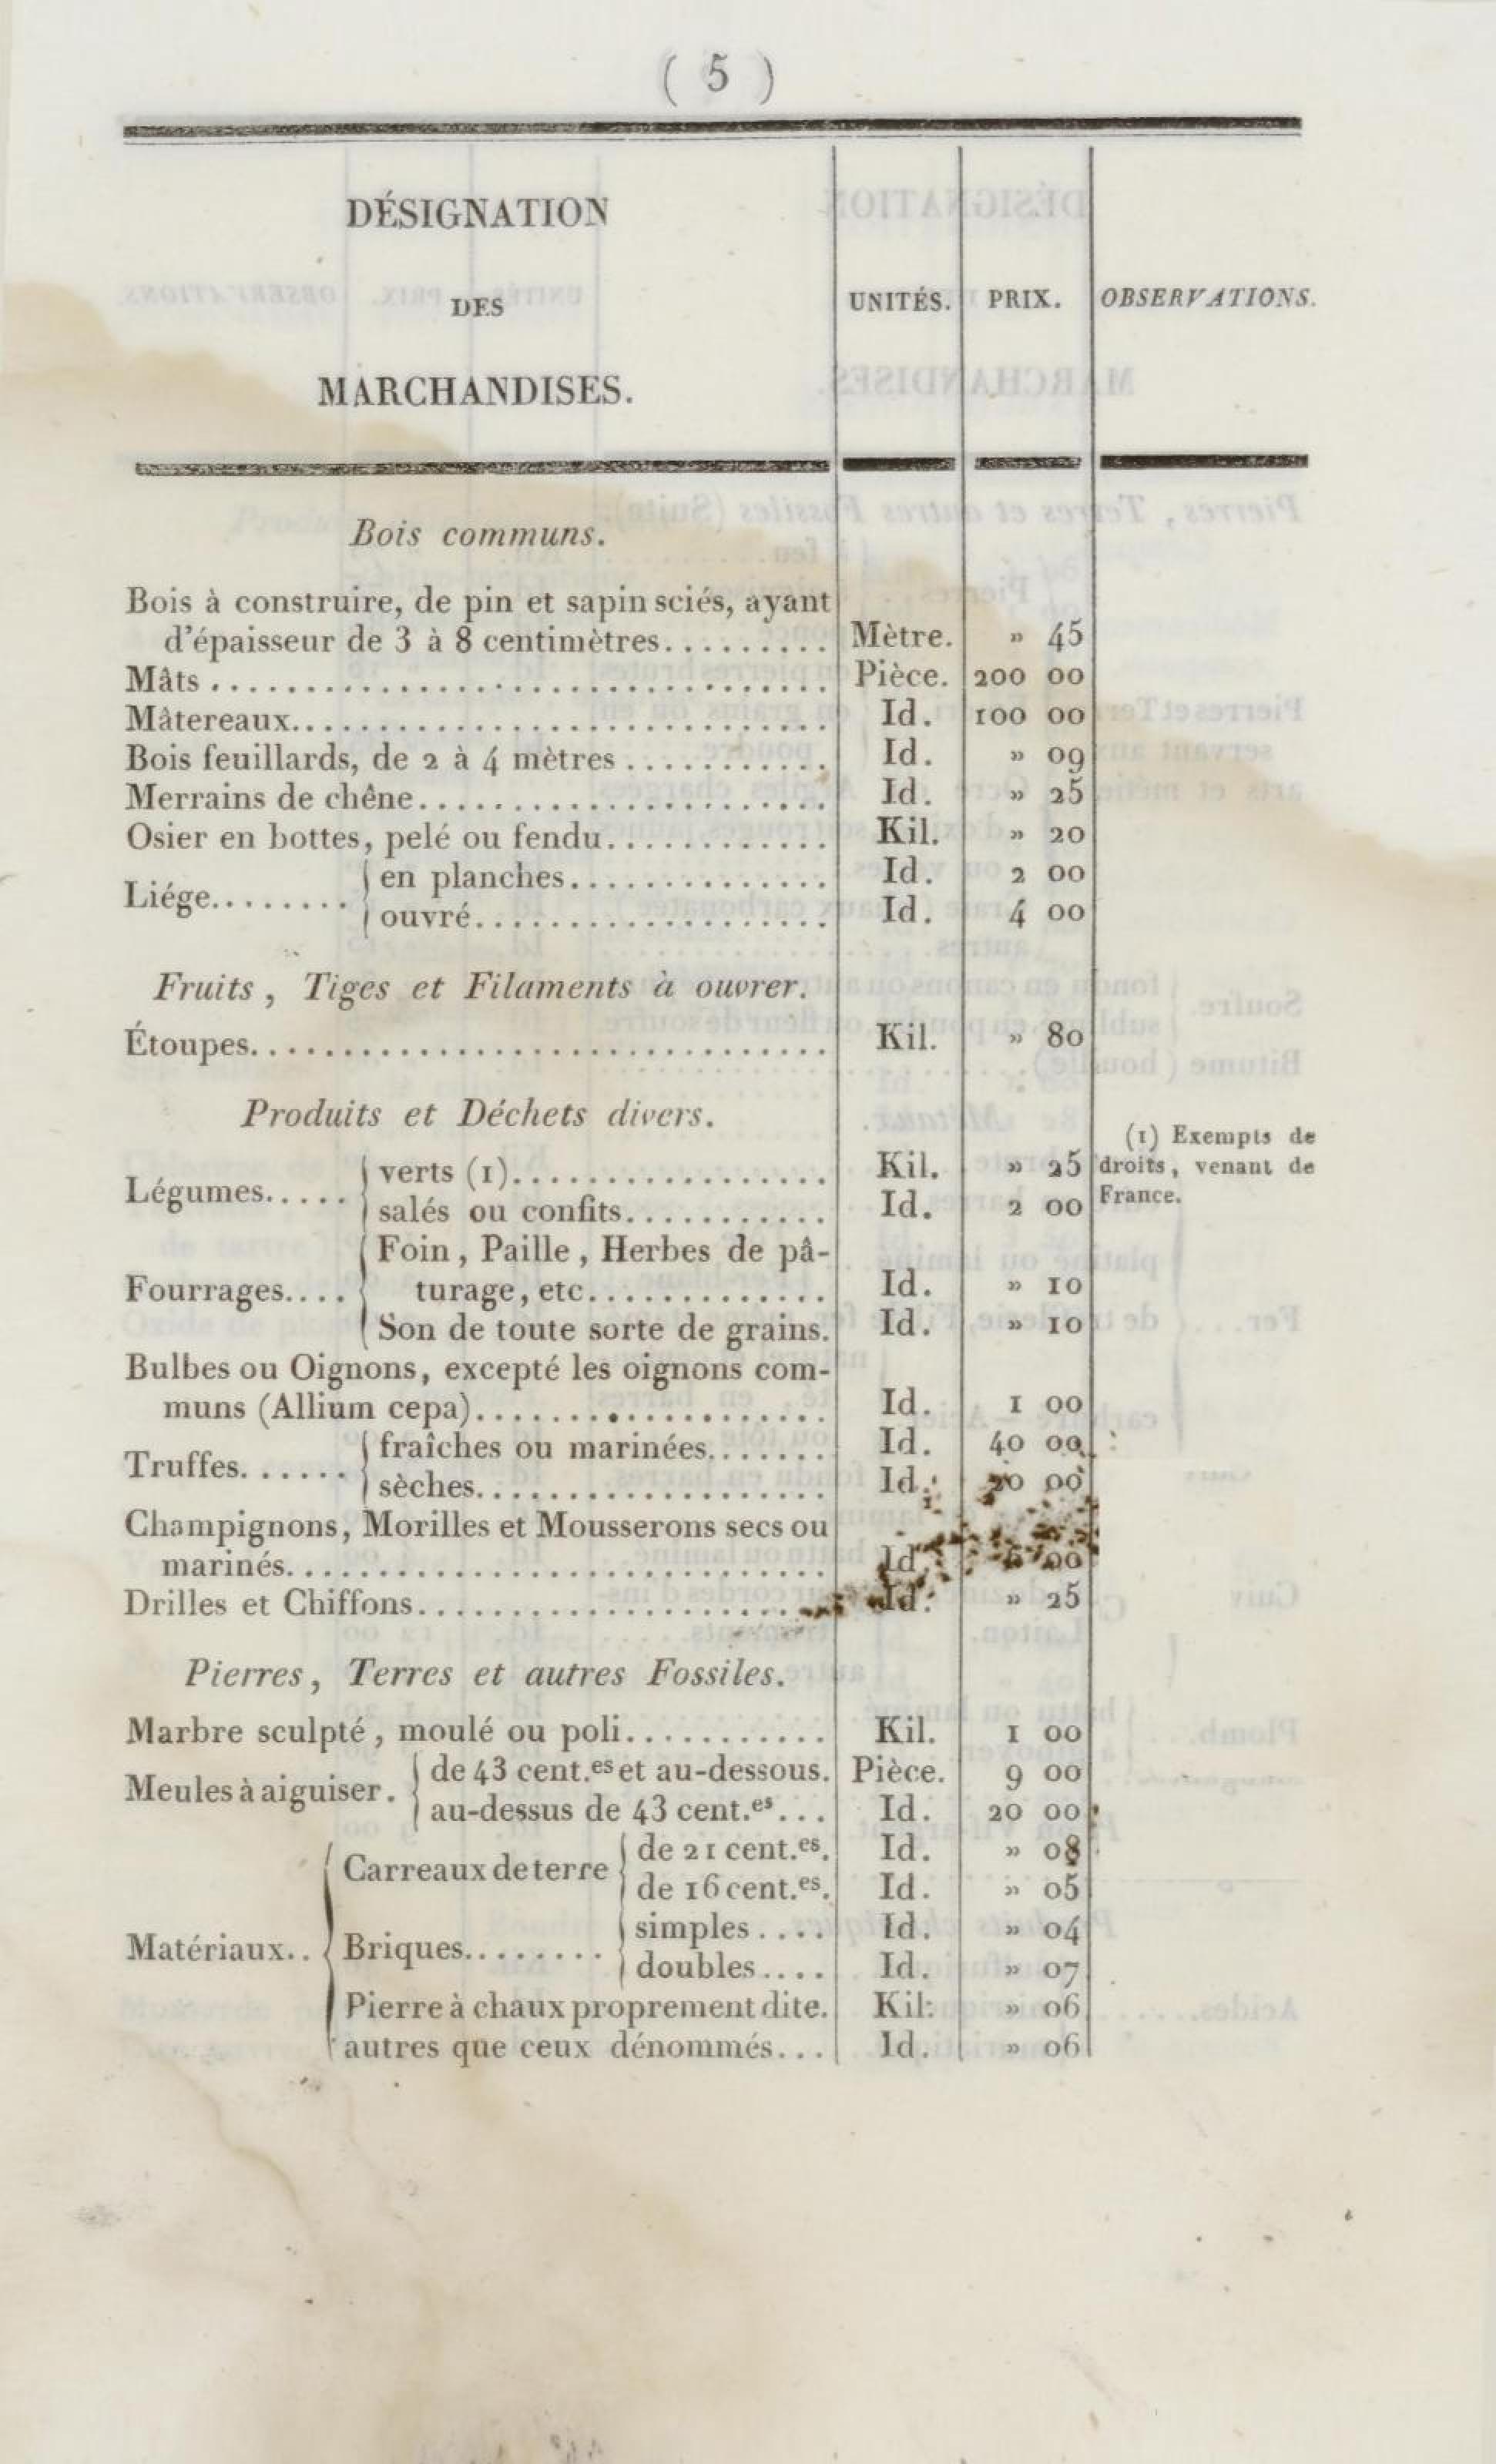 ( 5 )
DÉSIGNATION
DES
MARCHANDISES.
UNITÉS.
PRIX.
OBSERVATIONS.
Bois communs.
Bois à construire, de pin et sapin sciés, ayant
d'épaisseur de 3 à 8 centimètres......... Mètre. » 45
Mâts................................. Pièce. 200 00
Mâtereaux............................. Id. 100 00
Bois feuillards, de 2 à 4 mètres........... Id. » 09
Merrains de chêne...................... Id. » 25
Osier en bottes, pelé ou fendu............ Kil. » 20
Liége........
en planches.............. Id. 2 00
ouvré................... Id. 4 00
Fruits, Tiges et Filaments à ouvrer.
Étoupes............................... Kil. » 80
Produits et Déchets divers.
Légumes.....
verts (1)................. Kil. » 25
salés ou confits........... Id. 2 00
(1) Exempts de
droits, venant de
France.
Fourrages....
Foin, Paille, Herbes de pâ-
turage, etc............. Id. » 10
Son de toute sorte de grains. Id. » 10
Bulbes ou Oignons, excepté les oignons com-
muns (Allium cepa)................... Id. 1 00
Truffes......
fraîches ou marinées....... Id. 40 00
sèches................... Id. 00
Champignons, Morilles et Mousserons secs ou
marinés............................. Id. 00
Drilles et Chiffons...................... Id. » 25
Pierres, Terres et autres Fossiles.
Marbre sculpté, moulé ou poli........... Kil. 1 00
Meules à aiguiser.
de 43 cent.es et au-dessous. Pièce. 9 00
au-dessus de 43 cent.es... Id. 20 00
Matériaux..
Carreaux de terre
de 21 cent.es. Id. » 08
de 16 cent.es. Id. » 05
Briques........
simples.... Id. » 04
doubles.... Id. » 07
Pierre à chaux proprement dite. Kil. » 06
autres que ceux dénommés... Id. » 06